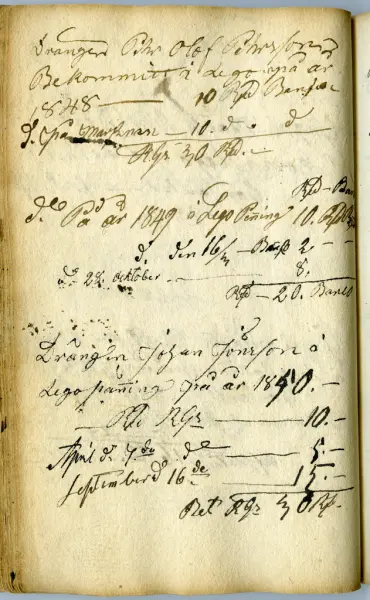 Drängen Pär Olof Pärsson
Bekommitt i Lego på år
1848 — 10 Rd Banco
d. på Marknan — 10. d. d
RGz 30 Rd.
Rd – Banco
d. På år 1849 i Lego Pening 10. Rd B
d. den 16/ – Banco 2. –
d. 24 october — 8.
Rd – 20. Banco
Drängin Johan Jönsson i
Lego päning på år 1850. –
Rd RGz — 10. –
April d. 7 de — 5. –
September d 16 de — 15. –
Ret RGz 30 Rd. –